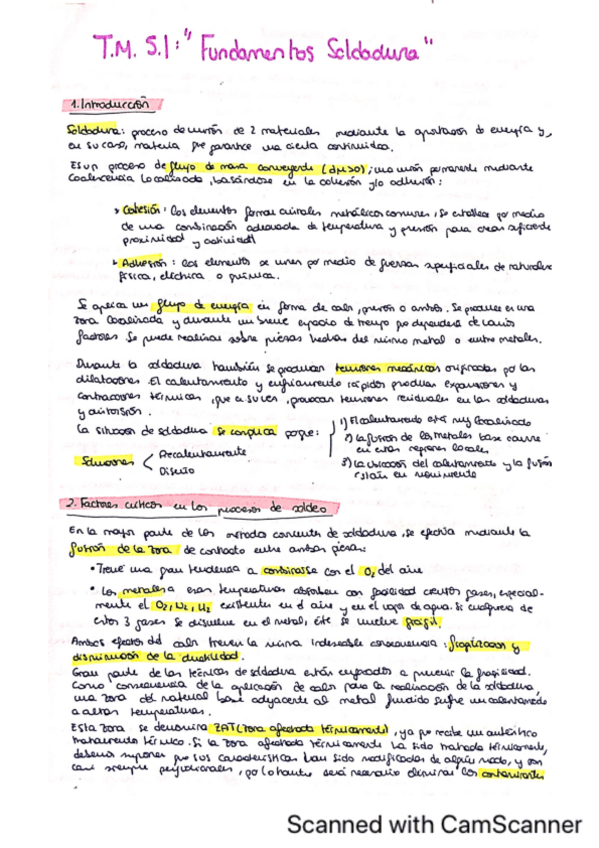 T.M. 5.1: "Fundamentos Soldadura"
1. Introducción
Soldadura: proceso de unión de 2 materiales mediante la aportación de energía y,
en su caso, materia que garantice una cierta continuidad.
Es un proceso de flujo de masa convergente (dM>0); una unión permanente mediante
Coalescencia Localizada, basándose en la cohesión y/o adhesión:
> Cohesión: los elementos forman cristales metálicos comunes, se establece por medio
de una combinación adecuada de temperatura y presión para crear suficiente
proximidad y actividad
> Adhesión: los elementos se unen por medio de fuerzas superficiales de naturaleza
física, eléctrica o química.
Se aplica un flujo de energía en forma de calor, presión o ambos. Se produce en una
zona localizada y durante un breve espacio de tiempo que dependerá de varios
factores. Se puede realizar sobre piezas hechas del mismo metal o entre metales.
Durante la soldadura también se producen tensiones mecánicas originadas por las
dilataciones. El calentamiento y enfriamiento rápidos producen expansiones y
contracciones térmicas, que a su vez, provocan tensiones residuales en las soldaduras
y distorsión.
La situación de soldadura se complica porque:
1) El calentamiento está muy localizado
2) La fusión de los metales base ocurre
en estas regiones locales
3) La ubicación del calentamiento y la fusión
están en movimiento
Soluciones
Precalentamiento
Diseño
2. Factores críticos en los procesos de soldeo
En la mayor parte de los métodos corrientes de soldadura, se efectúa mediante la
fusión de la zona de contacto entre ambas piezas:
• Tiene una gran tendencia a combinarse con el O2 del aire
• Los metales a esas temperaturas absorben con facilidad ciertos gases, especial-
mente el O2, N2, H2 existentes en el aire y en el vapor de agua. Si cualquiera de
estos 3 gases se disuelve en el metal, éste se vuelve frágil.
Ambos efectos del calor tienen la misma indeseable consecuencia: fragilización y
disminución de la ductilidad.
Gran parte de las técnicas de soldadura están enfocadas a prevenir la fragilidad.
Como consecuencia de la aplicación de calor para la realización de la soldadura,
una zona del material base adyacente al metal fundido sufre un calentamiento
a altas temperaturas.
Esta zona se denomina ZAT (Zona afectada térmicamente), ya que recibe un auténtico
tratamiento térmico. Si la zona afectada térmicamente ha sido tratada térmicamente,
debemos suponer que sus características han sido modificadas de algún modo, y son
casi siempre perjudiciales, por lo tanto será necesario eliminar los contaminantes
Scanned with CamScanner